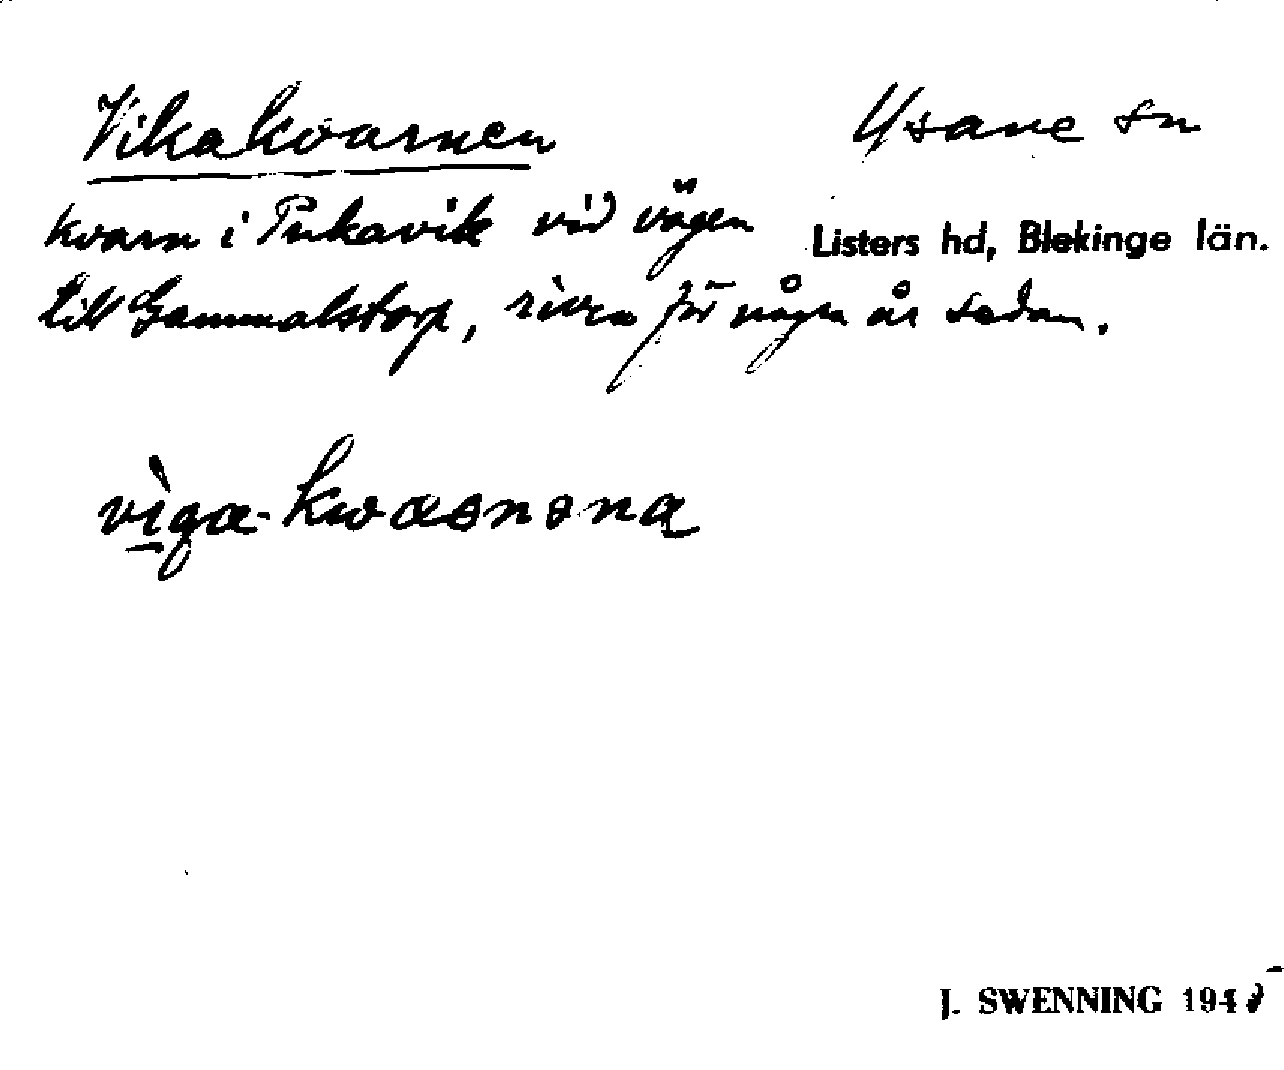 Vikakvarnen
Ysane sn
kvarn i Pukavik vid vägen
Listers hd, Blekinge län.
till Gammalstorp, riven för några år sedan.
viga-kwaʀnəna
J. SWENNING 194